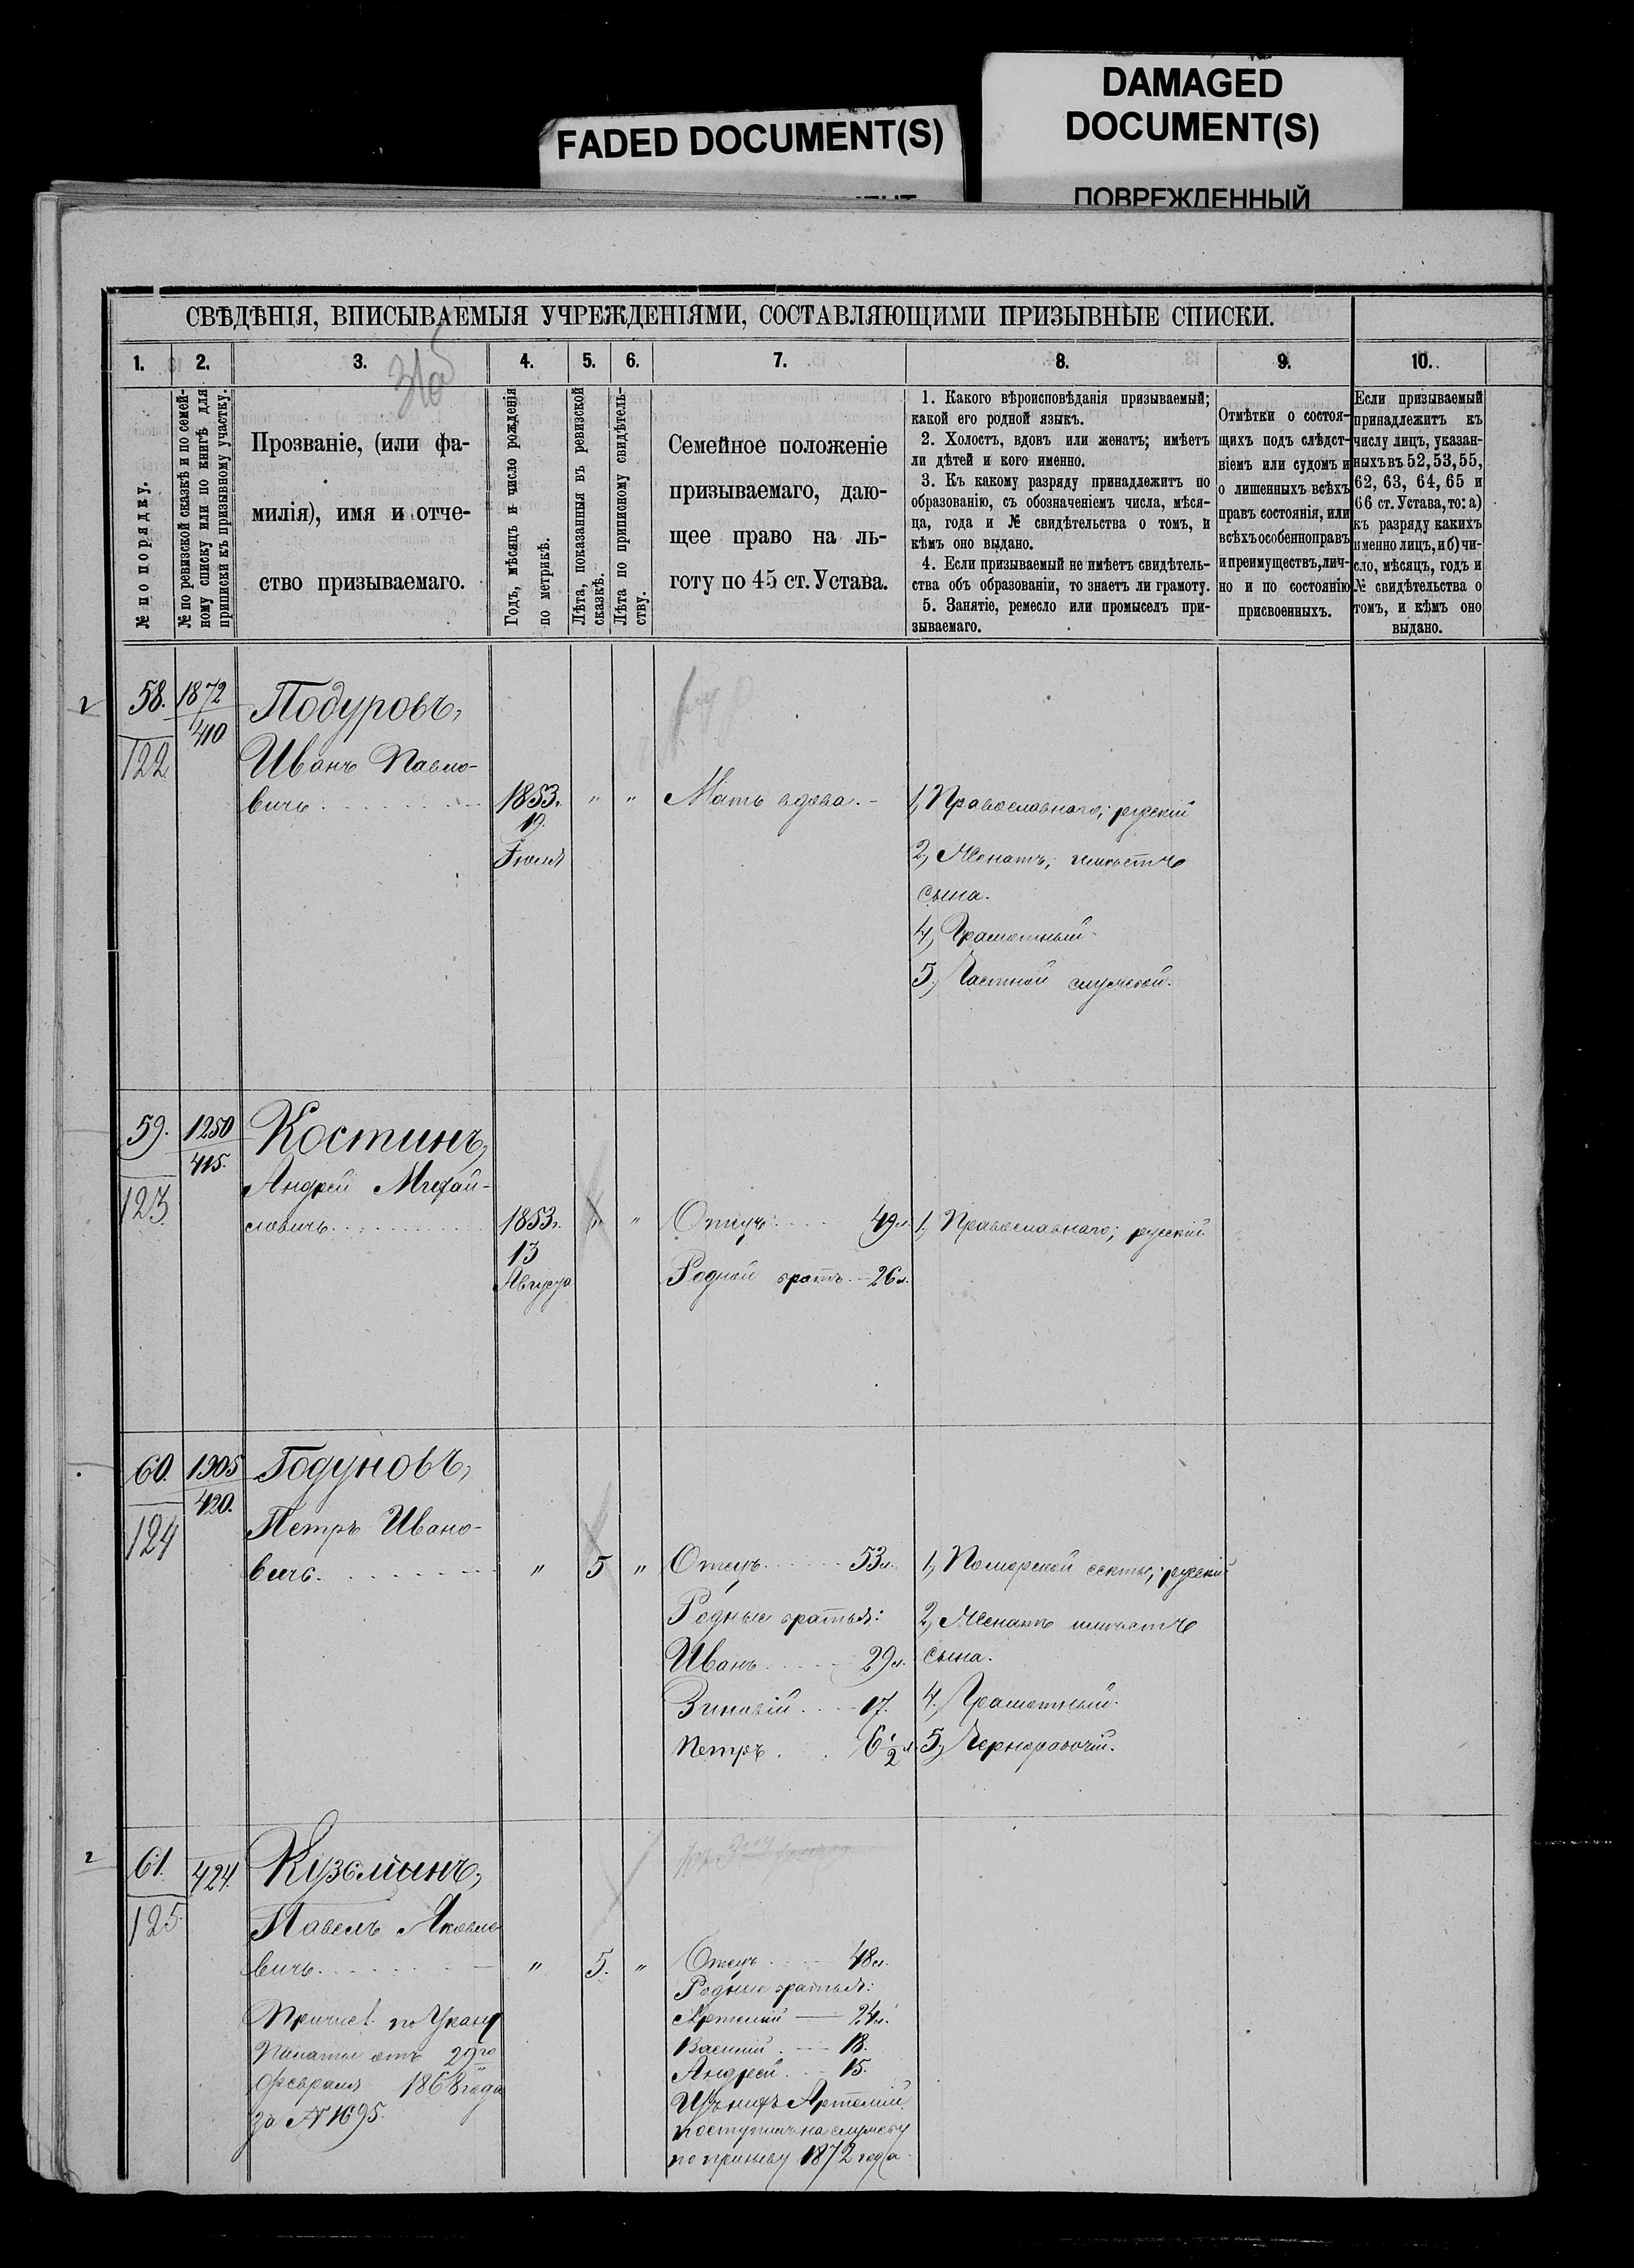 DAMAGED
DOCUMENT(S)
FADED DOCUMENT(S)
ПОВРЕЖДЕННЫЙ
СВѢДѢНІЯ, ВПИСЫВАЕМЫЯ УЧРЕЖДЕНІЯМИ, СОСТАВЛЯЮЩИМИ ПРИЗЫВНЫЕ СПИСКИ.
1. 2. 3. 4. 5. 6. 7. 8. 9. 10.
№ по порядку.
№ по ревизской сказкѣ и по семей-
ному списку или по книгѣ для
приписки къ призывному участку.
Прозваніе, (или фа-
милія), имя и отче-
ство призываемаго.
Годъ, мѣсяцъ и число рожденія
по метрикѣ.
Лѣта, показанныя въ ревизской
сказкѣ.
Лѣта по приписному свидѣтель-
ству.
Семейное положеніе
призываемаго, даю-
щее право на ль-
готу по 45 ст. Устава.
1. Какого вѣроисповѣданія призываемый;
какой его родной языкъ.
2. Холостъ, вдовъ или женатъ; имѣетъ
ли дѣтей и кого именно.
3. Къ какому разряду принадлежитъ по
образованію, съ обозначеніемъ числа, мѣся-
ца, года и № свидѣтельства о томъ, и
кѣмъ оно выдано.
4. Если призываемый не имѣетъ свидѣтель-
ства объ образованіи, то знаетъ ли грамоту.
5. Занятіе, ремесло или промыселъ при-
зываемаго.
Отмѣтки о состоя-
щихъ подъ слѣдст-
віемъ или судомъ и
о лишенныхъ всѣхъ
правъ состоянія, или
всѣхъ особенно правъ
и преимуществъ, лич-
но и по состоянію
присвоенныхъ.
Если призываемый
принадлежитъ къ
числу лицъ, указан-
ныхъ въ 52, 53, 55,
62, 63, 64, 65 и
66 ст. Устава, то: а)
къ разряду какихъ
именно лицъ, и б) чи-
сло, мѣсяцъ, годъ и
№ свидѣтельства о
томъ, и кѣмъ оно
выдано.
58. 1872
410
122
Подуровъ,
Иванъ Павло-
вичъ
1853г.
19.
Іюля
" "
Мать вдова.
1, Православнаго; русскій
2, Женатъ; имѣетъ
сына.
4, Грамотный.
5, Частной службой.
59. 1250
415.
123
Костинъ,
Андрей Михай-
ловичъ
1853г.
13
Августа
" "
Отецъ 49л.
Родной братъ 26л.
1, Православнаго; русскій
60. 1905
420.
124
Годуновъ,
Петръ Ивано-
вичъ.
" 5 "
Отецъ 53л.
Родные братья:
Иванъ 29л.
Зиновій 17.
Петръ 6 1/2 л.
1, Поморской секты; русскій
2, Женатъ имѣетъ
сына.
4, Грамотный.
5, Чернорабочій.
61. 424.
125.
Кузьминъ,
Павелъ Яковле
вичъ.
" 5. "
Причисл. по Указу
Палаты отъ 29го
февраля 1868 года
за № 1695.
Отецъ 48л.
Родные братья:
Артемій 24л.
Василій 18.
Андрей 15.
Изъ нихъ Артемій
поступилъ на службу
по призыву 1872 года.